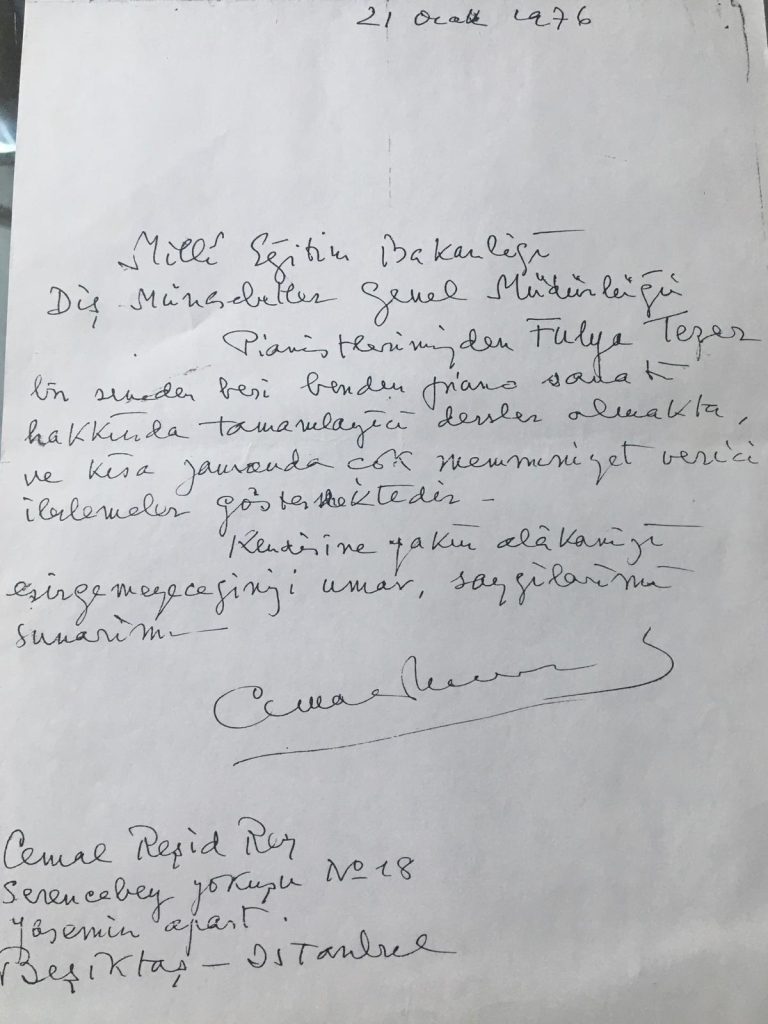 21 Ocak 1976
Millî Eğitim Bakanlığı
Dış Münasebetler Genel Müdürlüğü
Pianistlerimizden Fulya Tezer
bir seneden beri benden piano sanatı
hakkında tamamlayıcı dersler almakta,
ve kısa zamanda çok memnuniyet verici
ilerlemeler göstermektedir -
Kendisine yakın alâkanızı
esirgemeyeceğinizi umar, saygılarımı
sunarım. —
Cemal Reşid Rey
Serencebey yokuşu No 18
Yasemin apart.
Beşiktaş - İstanbul